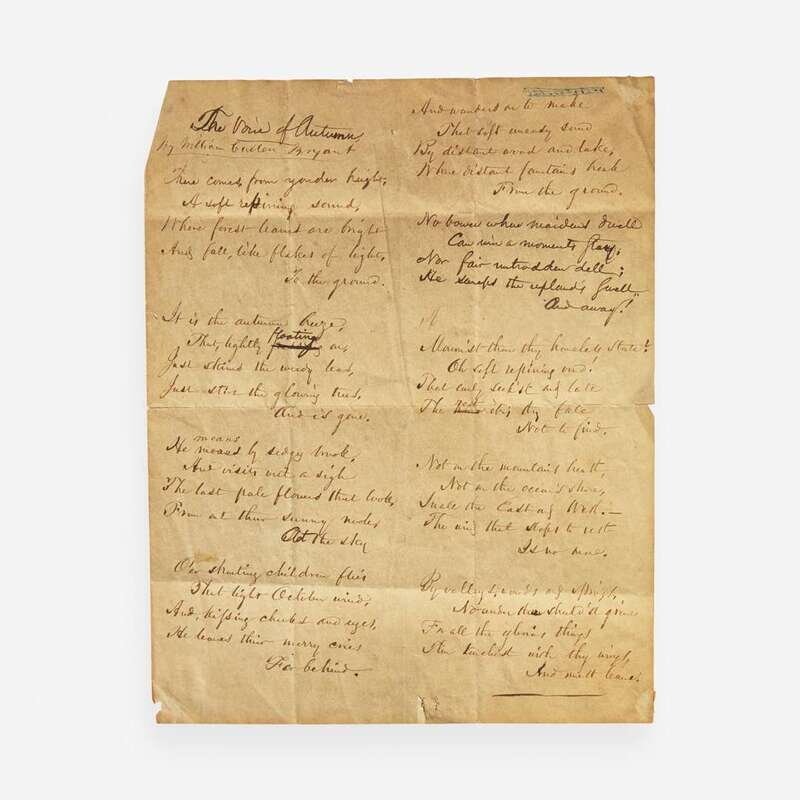 The Voice of Autumn
By William Cullen Bryant
There comes, from yonder height,
A soft repining sound,
Where forest leaves are bright
And fall, like flakes of light,
To the ground.
It is the autumn breeze,
That, lightly floating on,
Just skims the weedy leas,
Just stirs the glowing trees,
And is gone.
means
He moans by sedgy brook,
And visits with a sigh
The last pale flowers that look,
From out their sunny nook,
At the sky
O'er shouting children flies
That light October wind;
And, kissing cheeks and eyes,
He leaves their merry cries
Far behind.
And wanders on to make
That soft uneasy sound
By distant wood and lake,
Where distant fountains break
From the ground.
No bower where maidens dwell
Can win a moment's stay;
Nor fair untrodden dell;
He sweeps the upland's swell
And away!
Mourn'st thou thy homeless state?
Oh soft repining wind!
That early seek'st and late
The rest it is thy fate
Not to find.
Not on the mountain's breast,
Not on the ocean's shore,
In all the East and West:—
The wind that stops to rest
Is no more.
By valleys, woods and springs,
No wonder thou should'st grieve
For all the glorious things
Thou touchest with thy wings
And must leave.